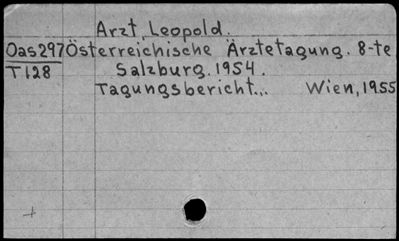 Arzt, Leopold.
Oas297 Österreichische Ärztetagung. 8-te
T128 Salzburg. 1954.
Tagungsbericht... Wien, 1955